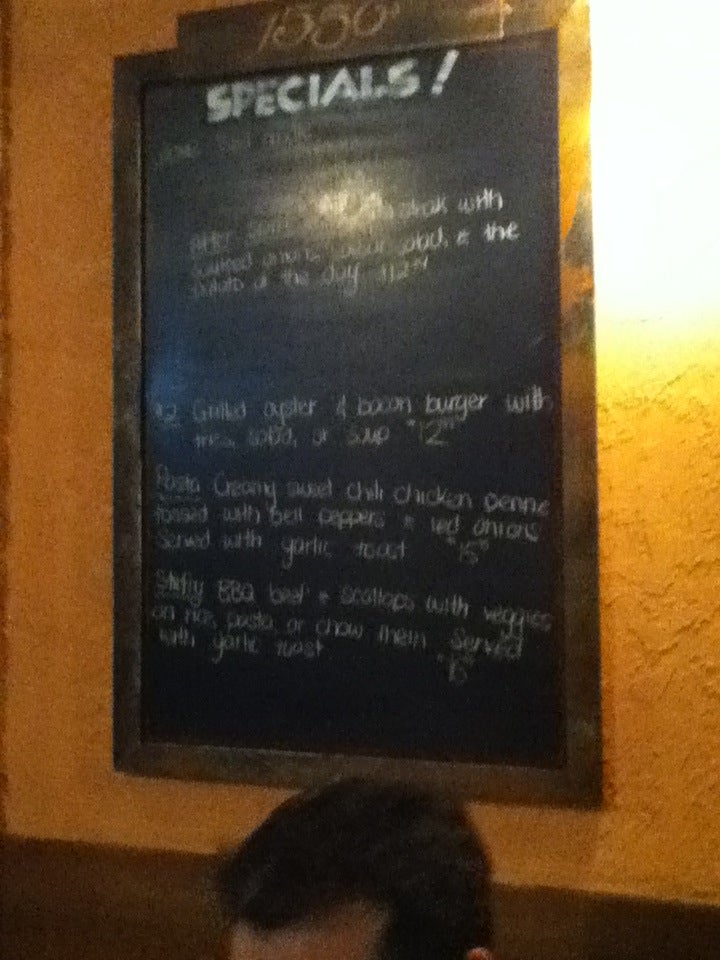 SPECIALS!
with
onions, salad, & the
potato of the day
#2 Grilled oyster & bacon burger with
fries, salad, or soup "12"
Pasta Creamy sweet chili chicken penne
tossed with bell peppers & red onions
Served with garlic toast "15"
Stirfry BBQ beef & scallops with veggies
on rice, pasta, or chow mein. Served
with garlic toast